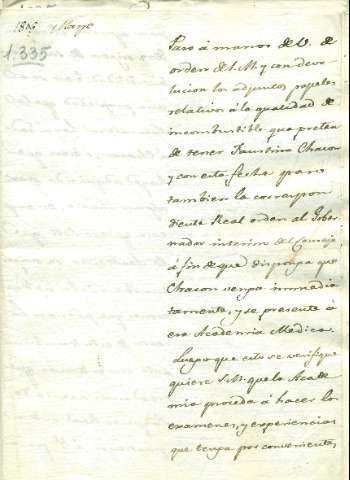 1803 Mayo
1.335
Paso á manos de V. de
orden de S.M. y con devo-
lucion los adjuntos papeles
relativos á la qualidad de
incombustible que preten
de tener Faustino Chacon
y con esta fecha paso
tambien la correspon
diente Real orden al Gober
nador interino del Consejo
á fin de que disponga que
Chacon venga inmedia
tamente, y se presente á
esa Academia Medica.
Luego que esto se verifique
quiere S.M. que la Acade
mia proceda á hacer los
examenes, y experiencias
que tenga por convenientes,